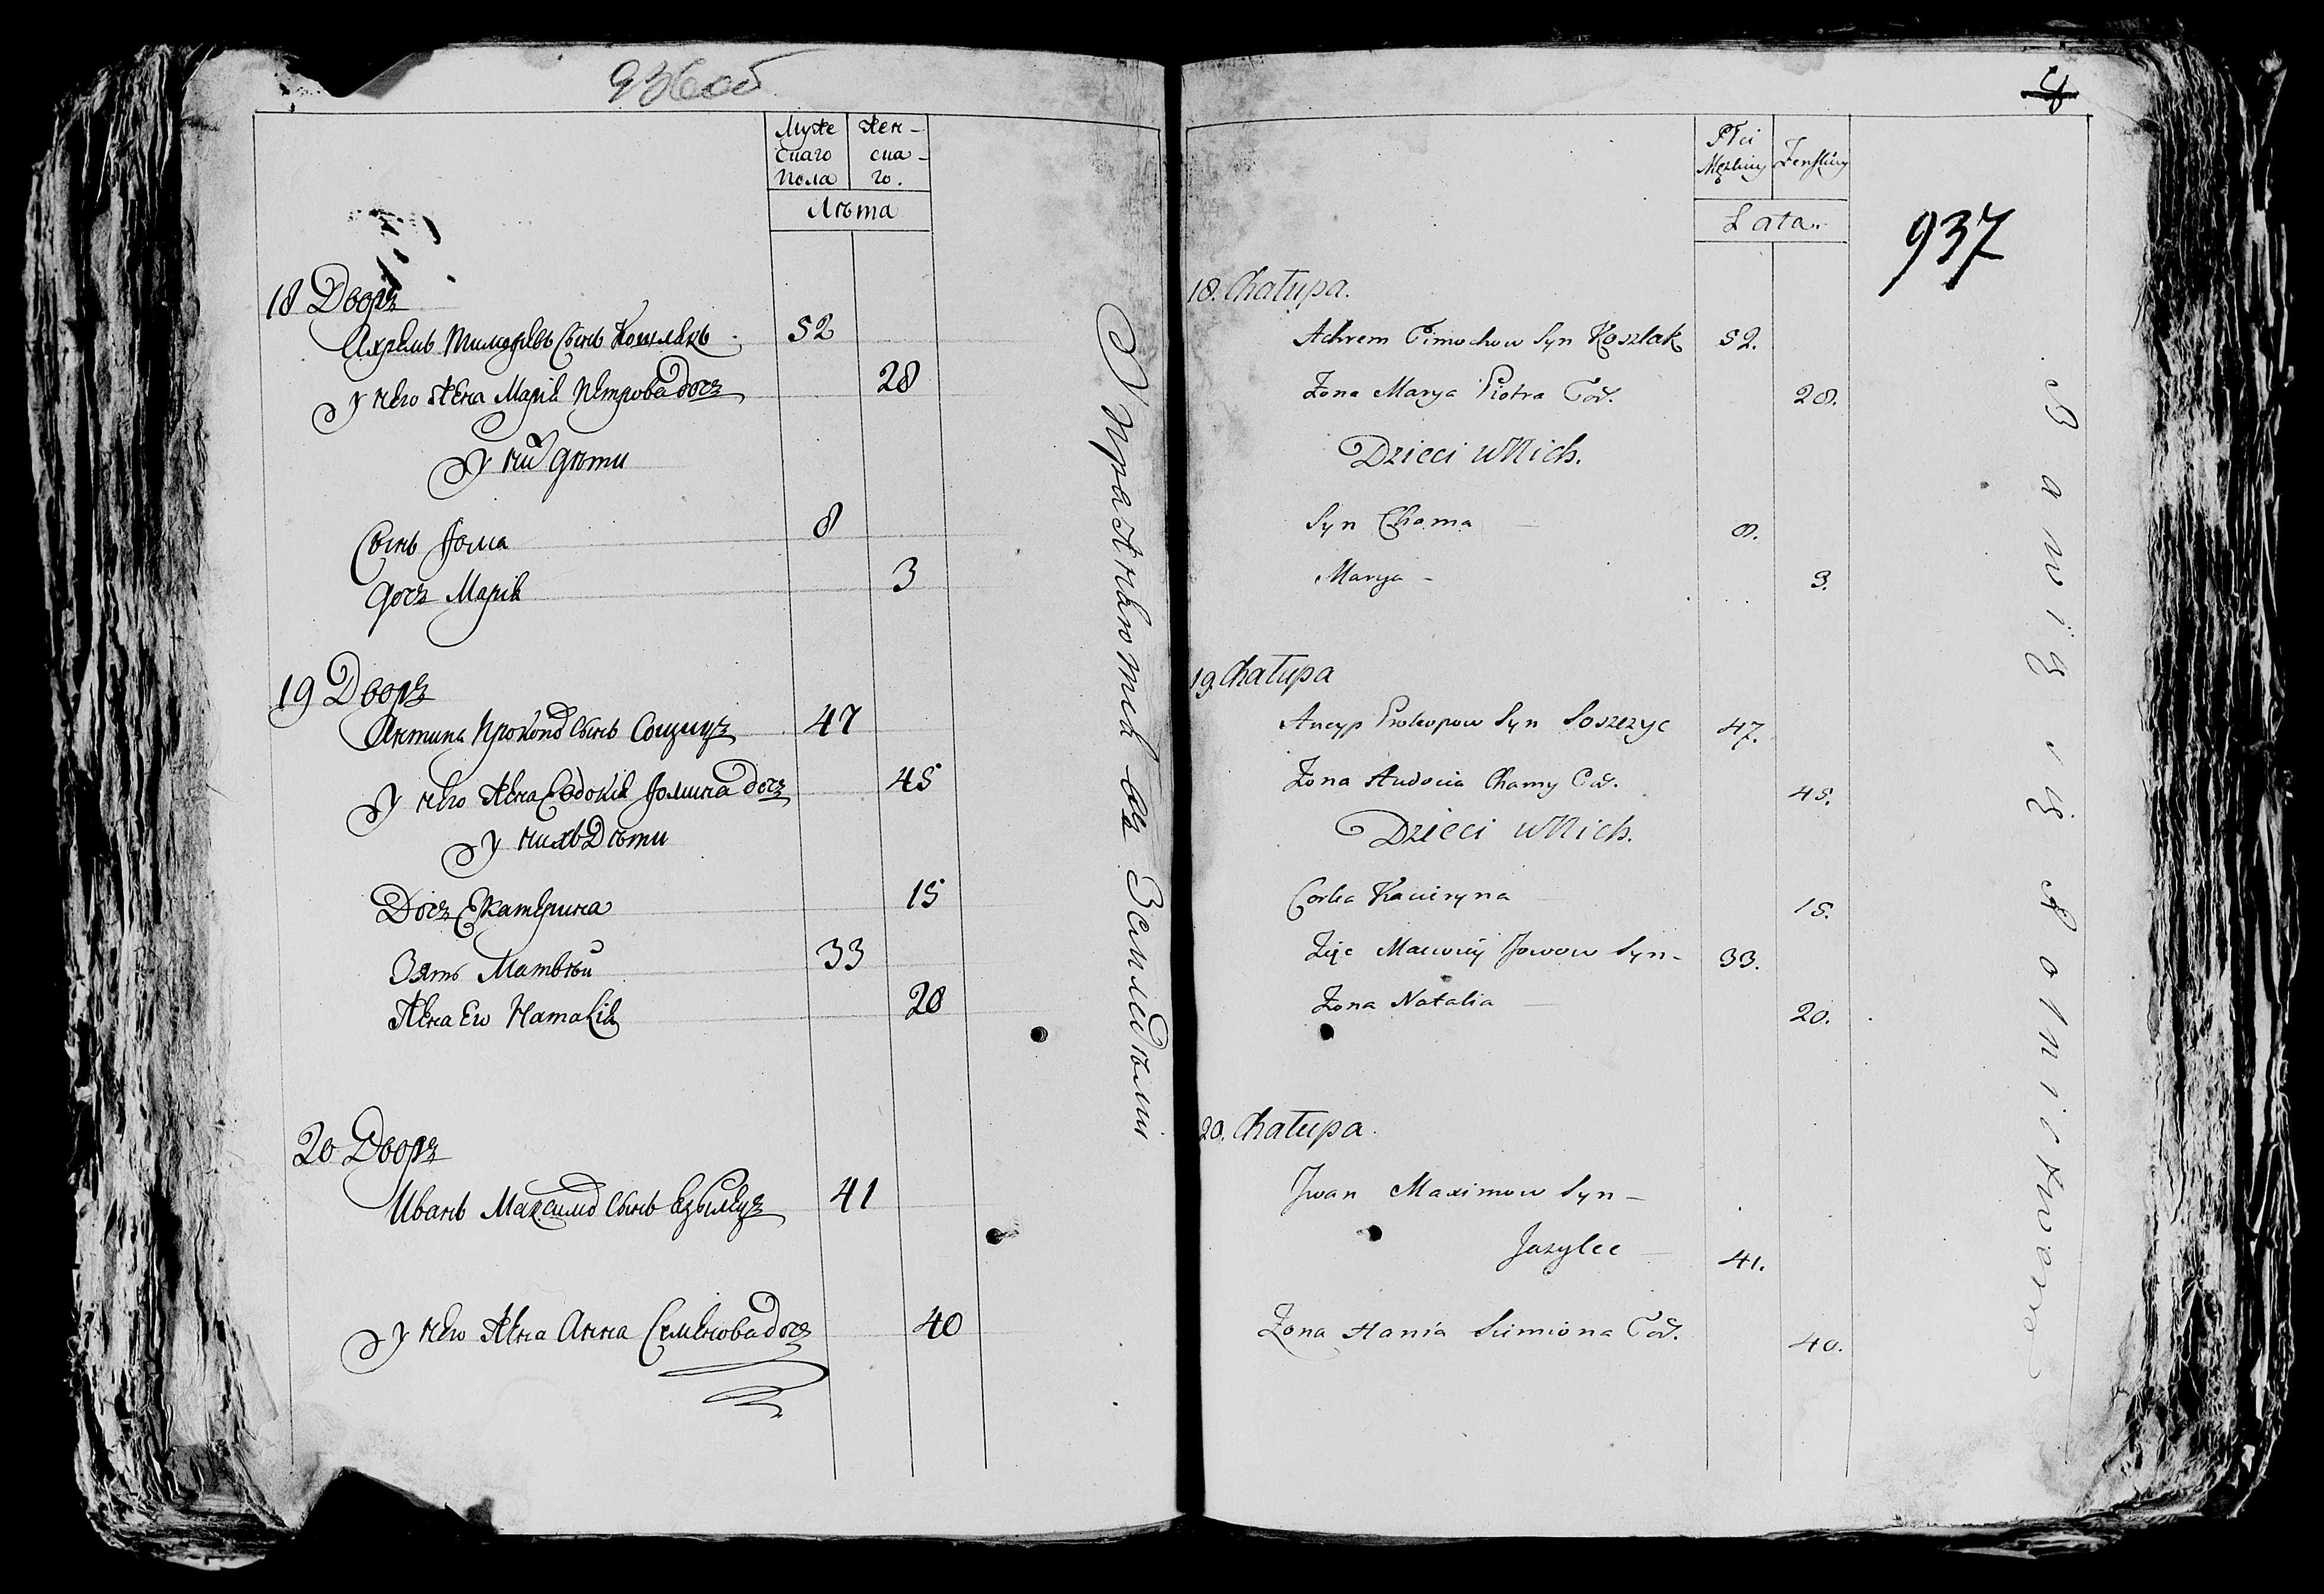 936об
Муже ском
скаго ска-
пола го.
Лѣта
18 Дворъ
Ахремъ Тимофѣевъ Сынъ Кошлакъ 52
у него жена Марія Петрова дочъ 28
у ни дѣти
Сынъ Фома 8
дочъ Марія 3
19 Дворъ
Антипа Прокопо Сынъ Сощицъ 47
у него жена Евдокія Фомина дочъ 45
у нихъ Дѣти
Дочъ Екатерина 15
Зять Матвѣй 33
жена Его Наталія 20
20 Дворъ
Иванъ Максимо Сынъ Езылецъ 41
у него жена Анна Семенова дочъ 40
Упражняются въ Земледѣліи
8
937
Płci
Męzkiey Zenskiey
Lata.
18. Chałupa.
Achrem Timochow Syn Koszlak 52.
Zona Marya Piotra Cór. 28.
Dzieci u Nich.
Syn Choma 8.
Marya - 3.
19. Chałupa
Ancyp Prokopow Syn Soszczyc 47.
Zona Audocia Chomy Cór. 45.
Dzieci u Nich.
Corka Kaciryna 15.
Zięc Maciuiy Jowow Syn - 33.
Zona Natalia 20.
20. Chałupa.
Jwan Maximow Syn -
Jazylec 41.
Zona Hania Siimiona Cór. 40.
Bawią się Rolnictwem